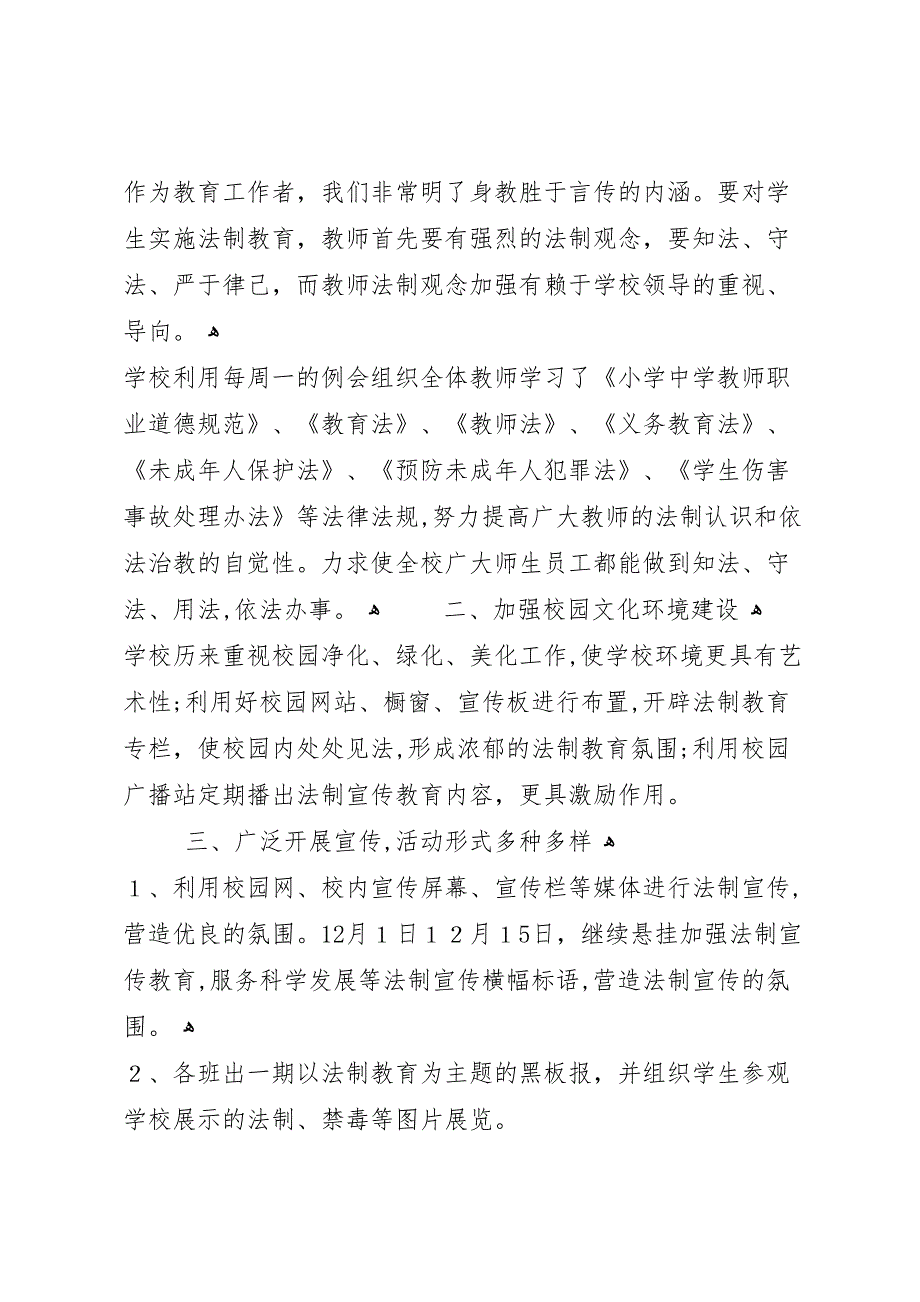 作为教育工作者，我们非常明了身教胜于言传的内涵。要对学
生实施法制教育，教师首先要有强烈的法制观念，要知法、守
法、严于律己，而教师法制观念加强有赖于学校领导的重视、
导向。 ﻫ
学校利用每周一的例会组织全体教师学习了《小学中学教师职
业道德规范》、《教育法》、《教师法》、《义务教育法》、
《未成年人保护法》、《预防未成年人犯罪法》、《学生伤害
事故处理办法》等法律法规,努力提高广大教师的法制认识和依
法治教的自觉性。力求使全校广大师生员工都能做到知法、守
法、用法,依法办事。 ﻫ 二、加强校园文化环境建设 ﻫ
学校历来重视校园净化、绿化、美化工作,使学校环境更具有艺
术性;利用好校园网站、橱窗、宣传板进行布置,开辟法制教育
专栏，使校园内处处见法,形成浓郁的法制教育氛围;利用校园
广播站定期播出法制宣传教育内容，更具激励作用。
三、广泛开展宣传,活动形式多种多样 ﻫ
１、利用校园网、校内宣传屏幕、宣传栏等媒体进行法制宣传,
营造优良的氛围。12月１日１２月１5日，继续悬挂加强法制宣
传教育,服务科学发展等法制宣传横幅标语,营造法制宣传的氛
围。 ﻫ
２、各班出一期以法制教育为主题的黑板报，并组织学生参观
学校展示的法制、禁毒等图片展览。